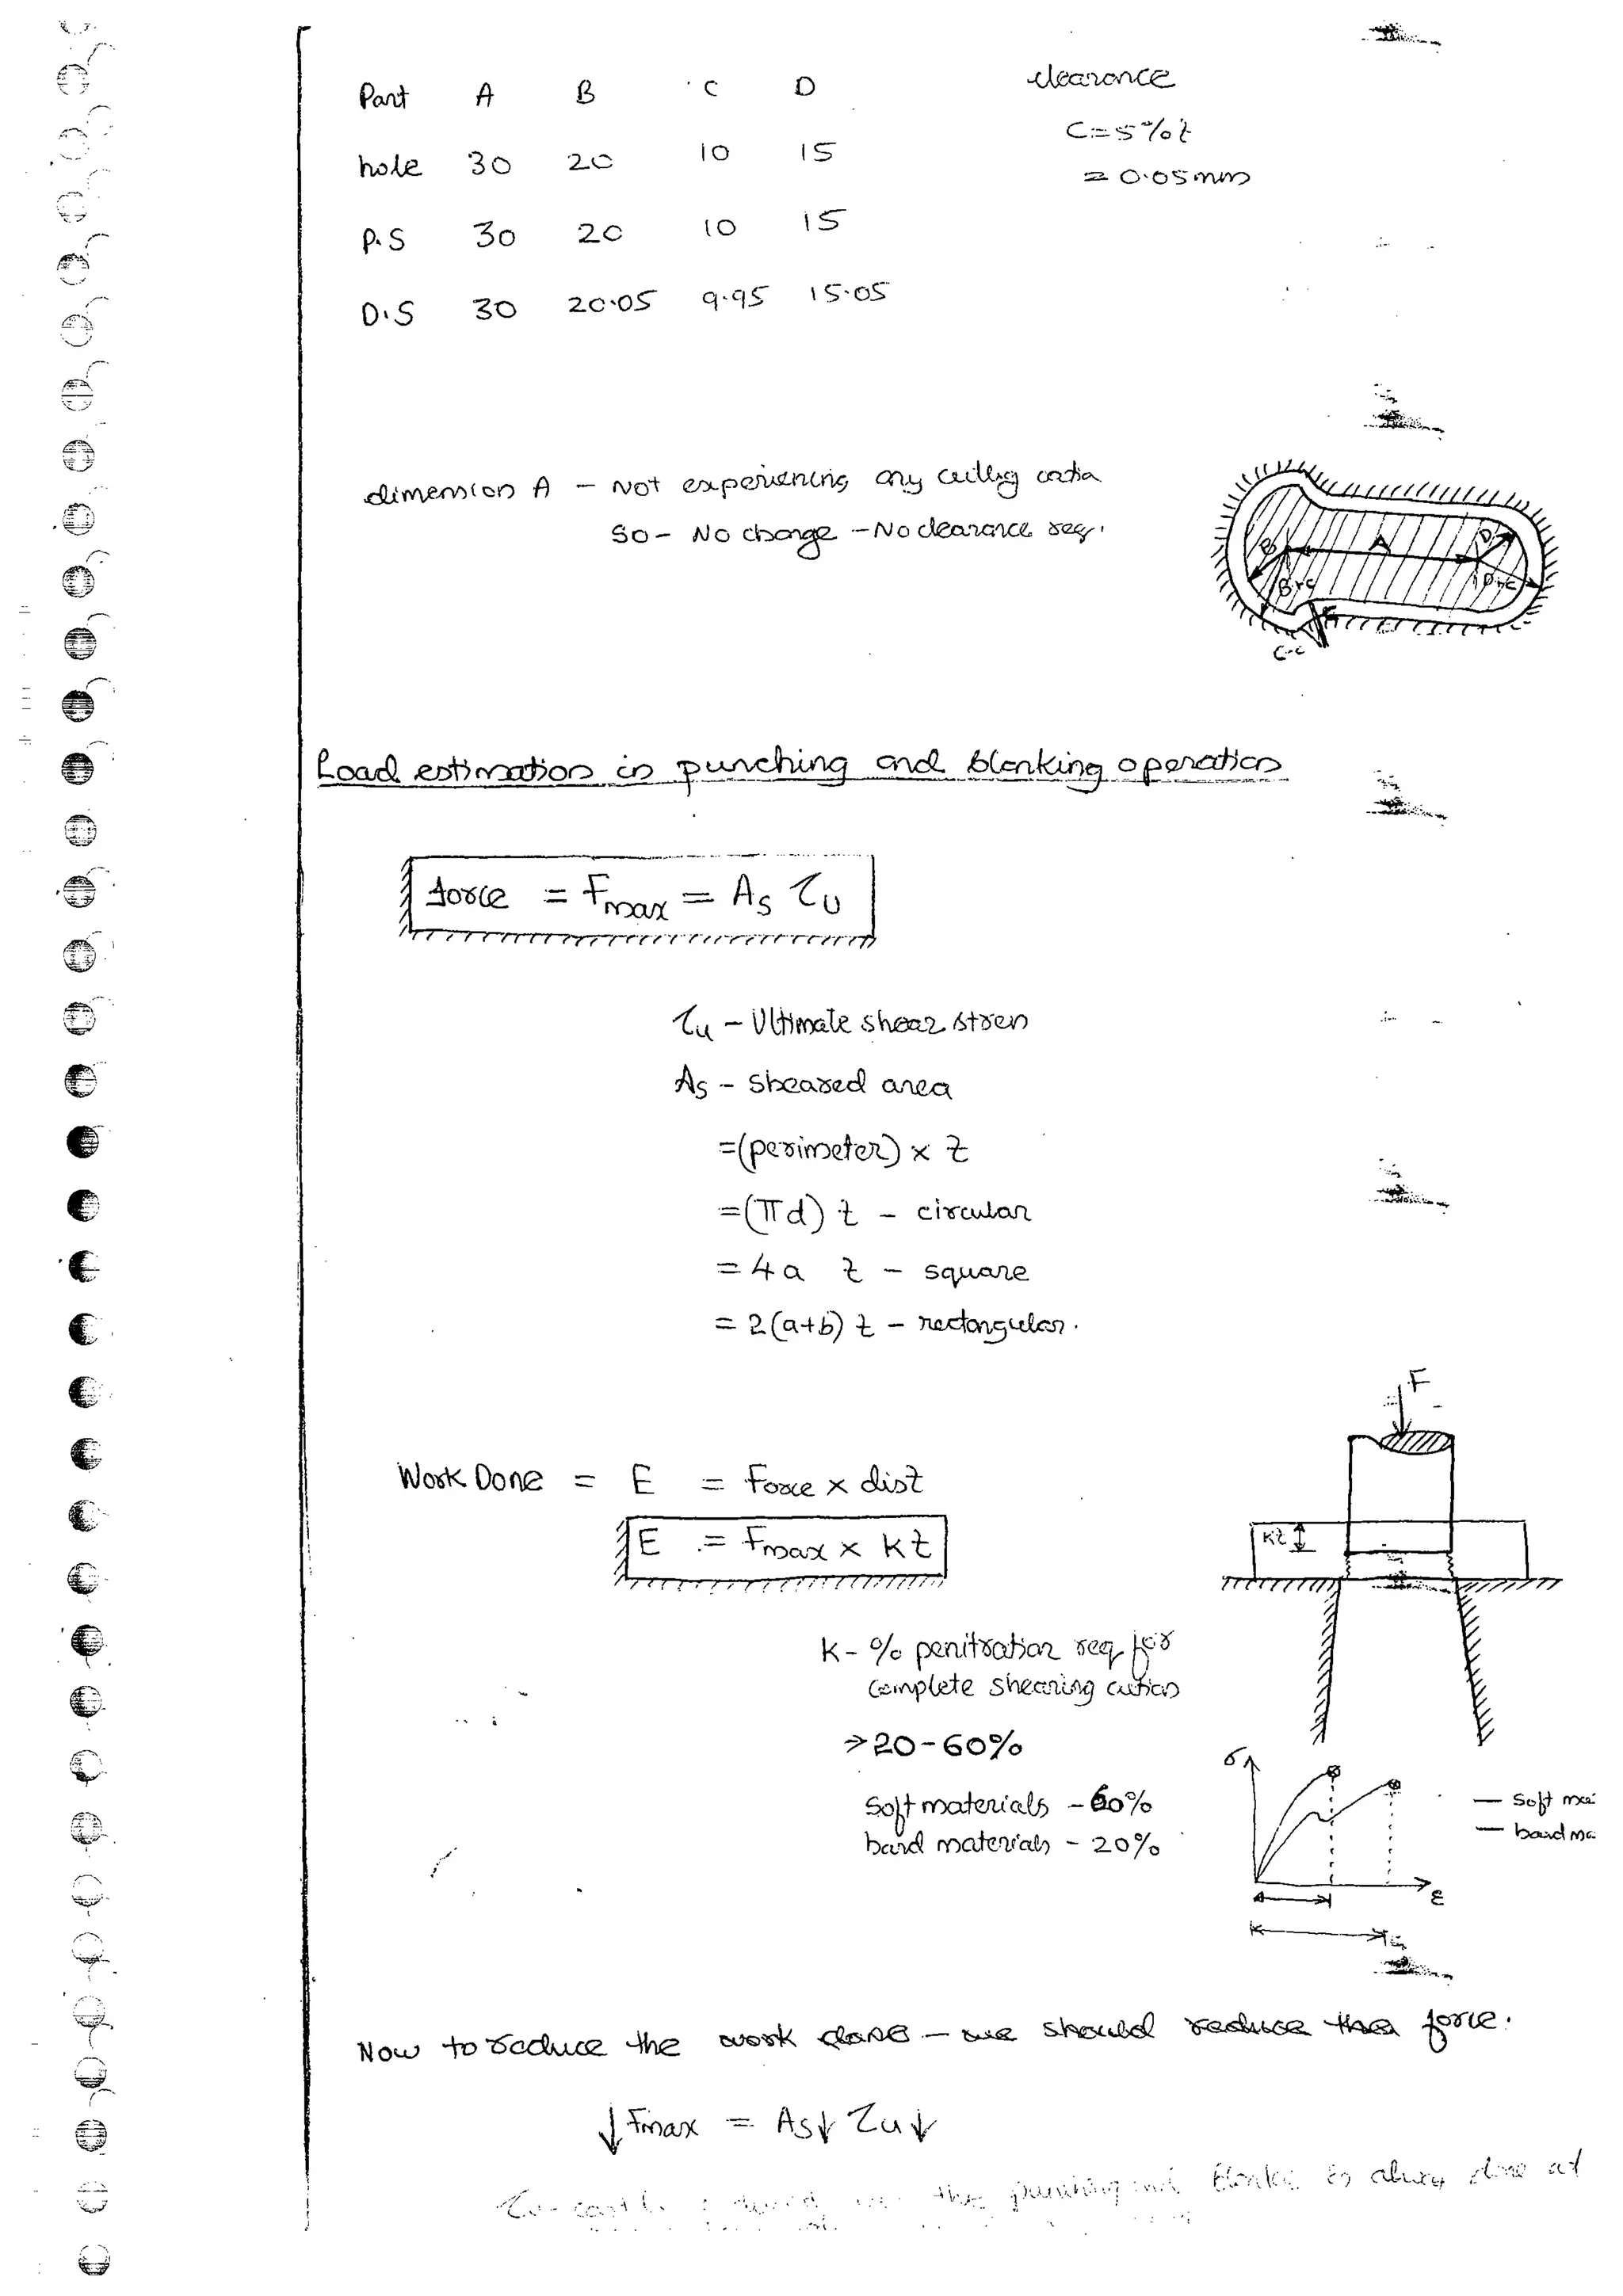 Part A B C D
hole 30 20 10 15
P.S 30 20 10 15
D.S 30 20.05 9.95 15.05
clearance
C = 5% t
= 0.05mm
dimension A - Not experiencing any cutting
So - No change - No clearance req.
B A D
B+C D+C
C-C
Load estimation in punching and blanking operation
force = Fmax = As τu
τu - Ultimate shear stren
As - sheared area
= (perimeter) × t
= (πd) t - circular
= 4a t - square
= 2(a+b) t - rectangular.
F
Work Done = E = Force × dist
E = Fmax × kt
kt
K - % penitration req for
complete shearing action
⇒ 20-60%
Soft materials - 60%
hard materials - 20%
σ
ε
— Soft ma
— hard ma
Now to reduce the work done - we should reduce the force.
↓ Fmax = As↓ τu↓
the punching done at